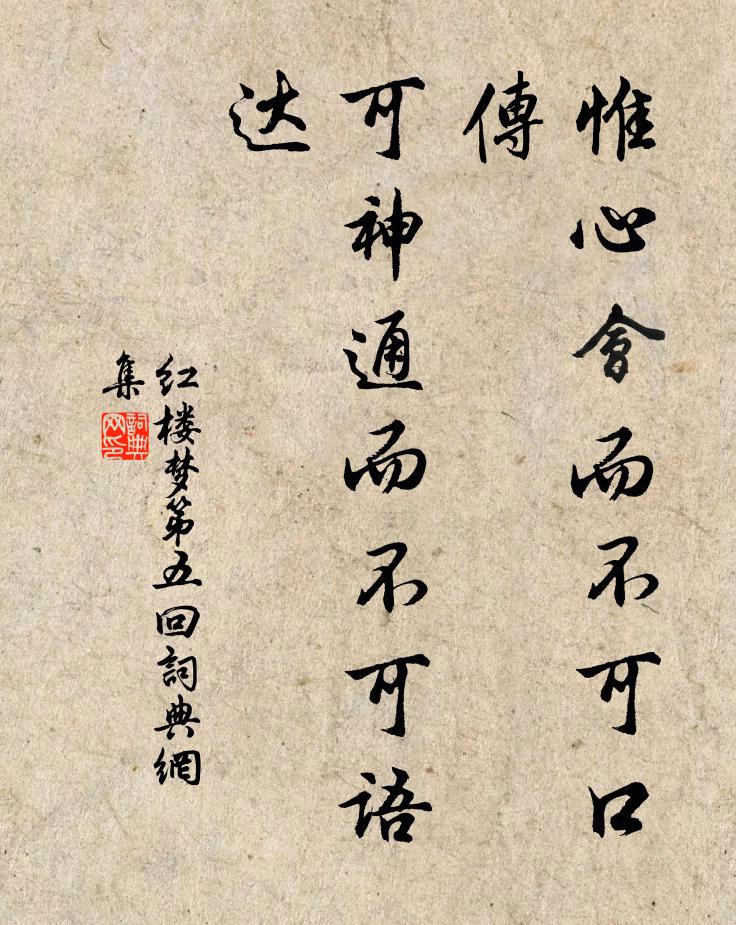 惟心會而不可口
傳
可神通而不可語
达
红楼梦第五回詞典網
集
詞典
网印